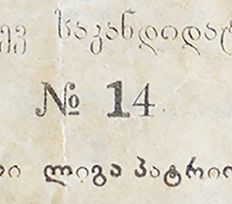 საკანდიდატ
№ 14
ლიგა პატრიო